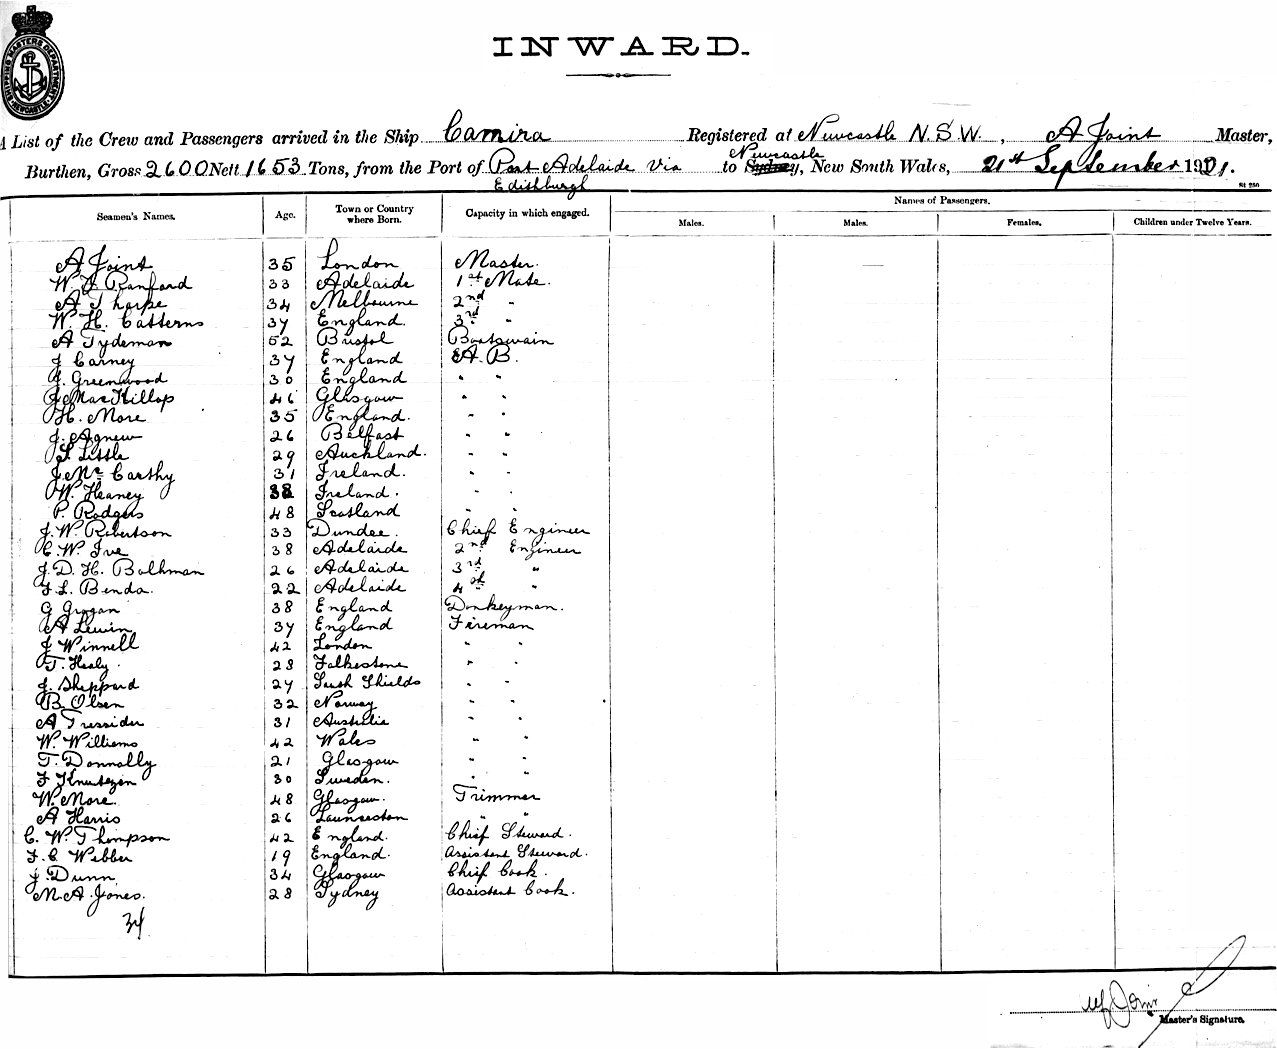 SHIPPING MASTERS DEPARTMENT NEWCASTLE
INWARD.
A List of the Crew and Passengers arrived in the Ship Camira Registered at Newcastle N.S.W., A Joint Master,
Burthen, Gross 2600 Nett 1653 Tons, from the Port of Port Adelaide Via Edithburgh to Sydney, Newcastle New South Wales, 21st September 1921.
Seamen's Names. Age. Town or Country where Born. Capacity in which engaged. Names of Passengers.
Males. Males. Females. Children under Twelve Years.
A Joint 35 London Master.
W. Ranford 33 Adelaide 1st Mate.
A Tharpe 34 Melbourne 2nd "
W. H. Catterns 37 England. 3rd "
A Tydeman 52 Bristol Boatswain
J Carney 37 England A. B.
Greenwood 30 England " "
J MacKillop 46 Glasgow " "
H. More 35 England. " "
J. Agnew 26 Belfast " "
S. Little 29 Auckland. " "
J. Mc Carthy 31 Ireland. " "
W. Heaney 38 Ireland. " "
P. Rodgers 48 Scotland " "
J. W. Robertson 33 Dundee. Chief Engineer
C. W. Ive 38 Adelaide 2nd Engineer
J. D. H. Bolhman 26 Adelaide 3rd "
F. L. Benda. 22 Adelaide 4th "
G Grogan 38 England Donkeyman.
A Lewin 37 England Fireman
J Winnell 42 London " "
T. Healy. 28 Folkestone " "
J. Sheppard 27 South Shields " "
B. Olsen 32 Norway " "
A Tressider 31 Australia " "
W. Williams 42 Wales " "
T. Donnolly 21 Glasgow " "
F Knutzen 30 Sweden. " "
W. More. 48 Glasgow. Trimmer
A Harris 26 Launceston " "
C. W. Thompson 42 England. Chief Steward.
F. C Webber 19 England. Assistant Steward.
J. Dunn 34 Glasgow Chief Cook.
M. A Jones. 28 Sydney Assistant Cook.
34
Joint
Master's Signature.